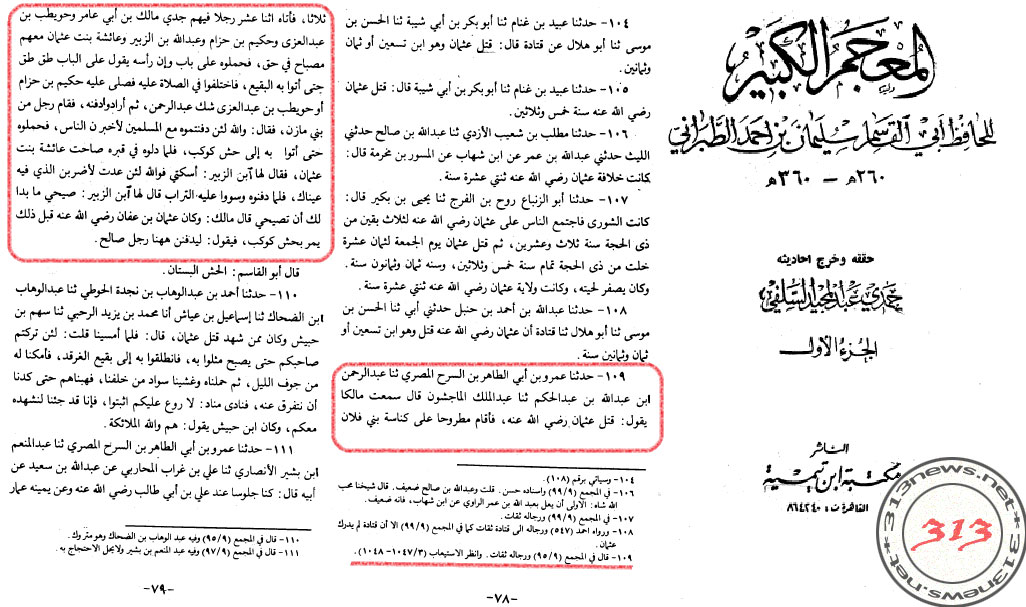 المعجم الكبير
للحافظ أبي القاسم سليمان بن احمد الطبراني
٢٦٠هـ - ٣٦٠هـ
حققه وخرج احاديثه
حمدي عبد المجيد السلفي
الجزء الأول
الناشر
مكتبة ابن تيمية
القاهرة ت: ٨٦٤٢٤٠
313news.net*313news.net*
313
١٠٤- حدثنا عبيد بن غنام ثنا أبو بكر بن أبي شيبة ثنا الحسن بن
موسى ثنا أبو هلال عن قتادة قال: قتل عثمان وهو ابن تسعين أو ثمان
وثمانين.
١٠٥- حدثنا عبيد بن غنام ثنا أبو بكر بن أبي شيبة قال: قتل عثمان
رضي الله عنه سنة خمس وثلاثين.
١٠٦- حدثنا مطلب بن شعيب الأزدي ثنا عبدالله بن صالح حدثني
الليث حدثني عبدالله بن عمر عن ابن شهاب عن المسور بن مخرمة قال:
كانت خلافة عثمان رضي الله عنه ثنتي عشرة سنة.
١٠٧- حدثنا أبو الزنباع روح بن الفرج ثنا يحيى بن بكير قال:
كانت الشورى فاجتمع الناس على عثمان رضي الله عنه لثلاث بقين من
ذى الحجة سنة ثلاث وعشرين، ثم قتل عثمان يوم الجمعة لثمان عشرة
خلت من ذى الحجة تمام سنة خمس وثلاثين، وسنه ثمان وثمانون سنة.
وكان يصفر لحيته، وكانت ولاية عثمان رضي الله عنه ثنتي عشرة سنة.
١٠٨- حدثنا عبدالله بن أحمد بن حنبل حدثني أبي ثنا الحسن بن
موسى ثنا أبو هلال ثنا قتادة أن عثمان رضي الله عنه قتل وهو ابن تسعين أو
ثمان وثمانين سنة.
١٠٩- حدثنا عمرو بن أبي الطاهر بن السرح المصري ثنا عبدالرحمن
ابن عبدالله بن عبدالحكم ثنا عبدالملك الماجشون قال سمعت مالكا
يقول: قتل عثمان رضي الله عنه، فأقام مطروحا على كناسة بني فلان
١٠٤- وسيأتي برقم (١٠٨).
١٠٦- في المجمع (٩٩/٩) واسناده حسن. قلت وعبدالله بن صالح ضعيف. قال شيخنا محب
الله شاه: الأولى أن يعل بعبد الله بن عمر الراوي عن ابن شهاب، فانه ضعيف.
١٠٧- في المجمع (٩٩/٩) ورجاله ثقات.
١٠٨- ورواه احمد (٥٤٧) ورجاله الى قتادة ثقات كما في المجمع (٩٩/٩) الا أن قتادة لم يدرك
عثمان.
١٠٩- قال في المجمع (٩٥/٩) ورجاله ثقات. وانظر الاستيعاب (١٠٤٧/٣- ١٠٤٨).
-٧٨-
ثلاثا، فأتاه اثنا عشر رجلا فيهم جدي مالك بن أبي عامر وحويطب بن
عبدالعزى وحكيم بن حزام وعبدالله بن الزبير وعائشة بنت عثمان معهم
مصباح في حق، فحملوه على باب وإن رأسه يقول على الباب طق طق
حتى أتوا به البقيع، فاختلفوا في الصلاة عليه فصلى عليه حكيم بن حزام
أو حويطب بن عبدالعزى شك عبدالرحمن، ثم أرادوا دفنه، فقام رجل من
بني مازن، فقال: والله لئن دفنتموه مع المسلمين لأخبرن الناس، فحملوه
حتى أتوا به إلى حش كوكب، فلما دلوه في قبره صاحت عائشة بنت
عثمان، فقال لها ابن الزبير: أسكتي فوالله لئن عدت لأضربن الذي فيه
عيناك، فلما دفنوه وسووا عليه التراب قال لها ابن الزبير: صيحي ما بدا
لك أن تصيحي قال مالك: وكان عثمان بن عفان رضي الله عنه قبل ذلك
يمر بحش كوكب، فيقول: ليدفنن ههنا رجل صالح.
قال أبو القاسم: الحش البستان.
١١٠- حدثنا أحمد بن عبدالوهاب بن نجدة الحوطي ثنا عبدالوهاب
ابن الضحاك ثنا إسماعيل بن عياش أنا محمد بن يزيد الرحبي ثنا سهم بن
حبيش وكان ممن شهد قتل عثمان، قال: فلما أمسينا قلت: لئن تركتم
صاحبكم حتى يصبح مثلوا به، فانطلقوا به إلى بقيع الغرقد، فأمكنا له
من جوف الليل، ثم حملناه وغشينا سواد من خلفنا، فهبناهم حتى كدنا
أن نتفرق عنه، فنادى مناد: لا روع عليكم اثبتوا، فإنا قد جئنا لنشهده
معكم، وكان ابن حبيش يقول: هم والله الملائكة.
١١١- حدثنا عمرو بن أبي الطاهر بن السرح المصري ثنا عبدالمنعم
ابن بشير الأنصاري ثنا علي بن غراب المحاربي عن عبدالله بن سعيد عن
أبيه قال: كنا جلوسا عند علي بن أبي طالب رضي الله عنه وعن يمينه عمار
١١٠- قال في المجمع (٩٥/٩) وفيه عبد الوهاب بن الضحاك وهو متروك.
١١١- قال في المجمع (٩٧/٩) وفيه عبد المنعم بن بشير ولا يحل الاحتجاج به.
-٧٩-